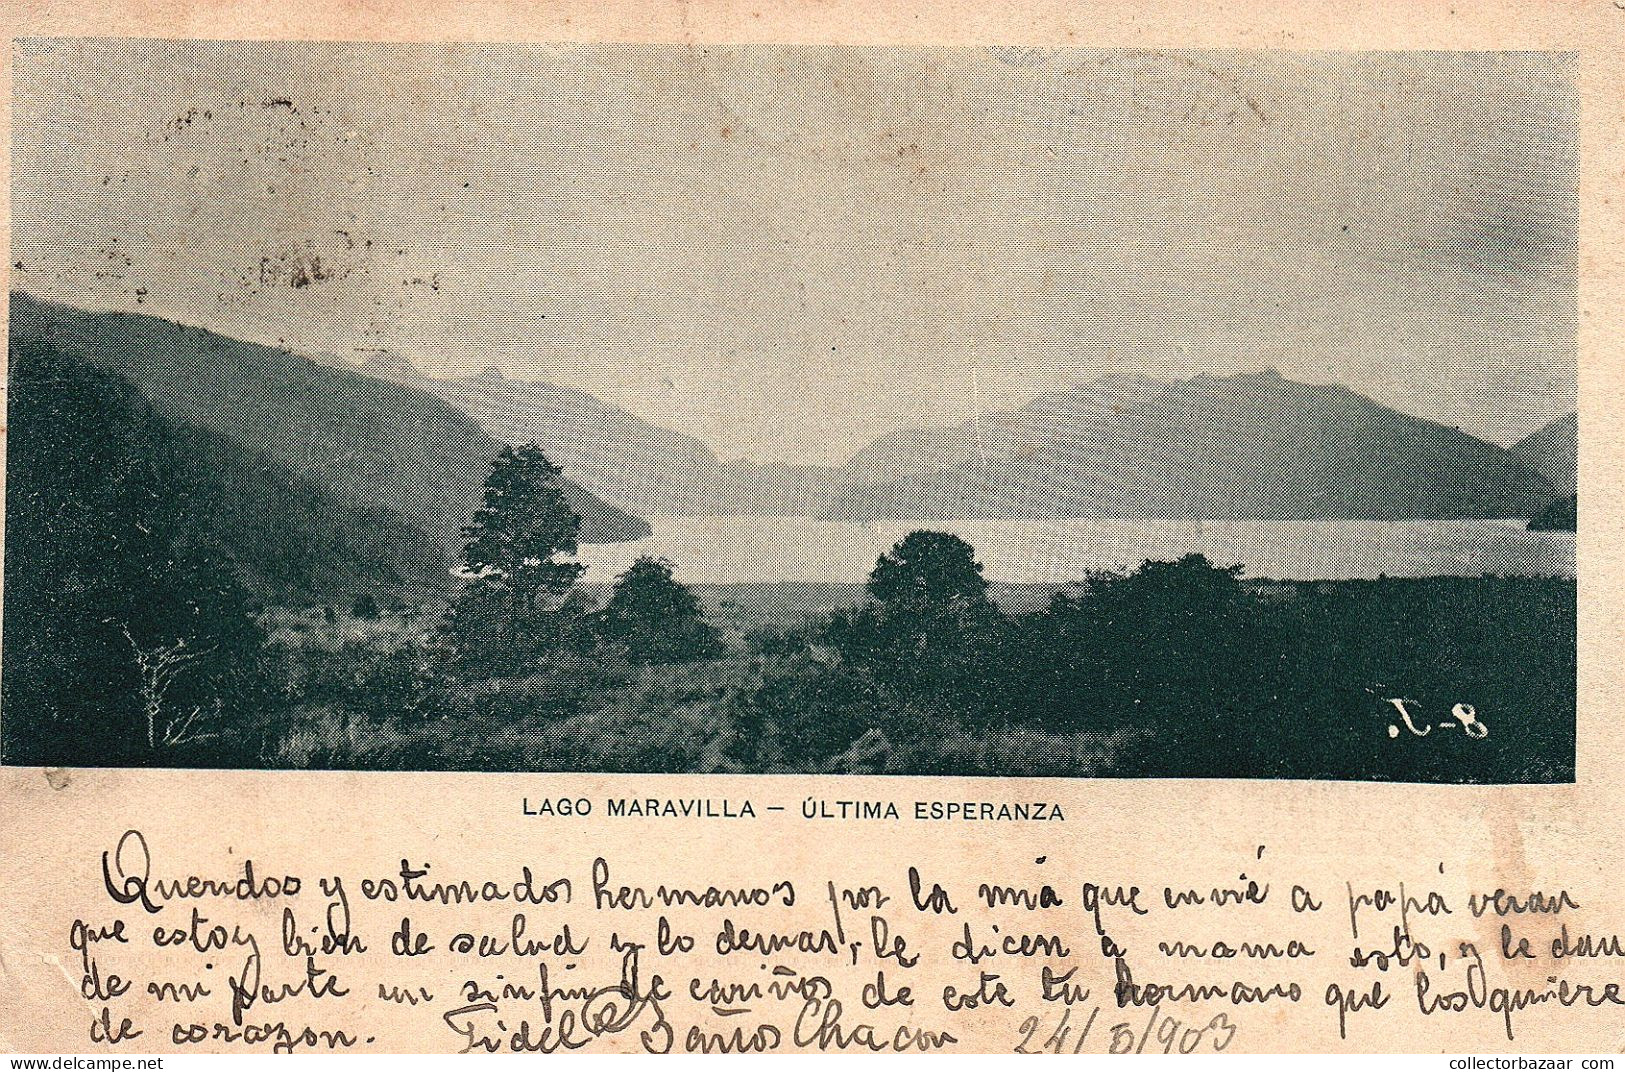 J-8
LAGO MARAVILLA – ÚLTIMA ESPERANZA
Queridos y estimados hermanos por la mia que envié a papá veran
que estoy bien de salud y lo demas, le dicen a mama esto, y le dan
de mi parte un sinfin de cariños de este tu hermano que los quiere
de corazon. Fidel Baños Chacon 24/5/903
collectorbazaar.com